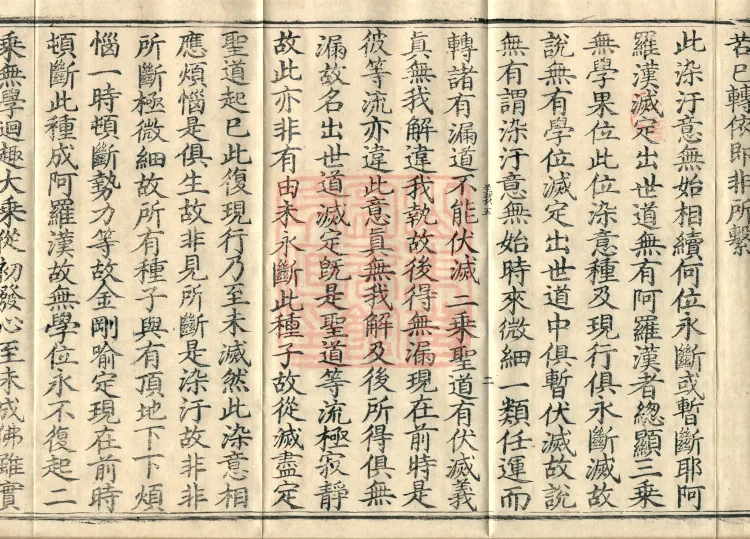 苦已轉依即非所繫
此染汙意無始相續何位永斷或暫斷耶阿
羅漢滅定出世道無有阿羅漢者緫顯三乘
無學果位此位染意種及現行俱永斷滅故
說無有學位滅定出世道中俱暫伏滅故說
無有謂染汙意無始時來微細一類任運而
轉諸有漏道不能伏滅二乘聖道有伏滅義
真無我解違我執故後得無漏現在前時是
彼等流亦違此意真無我解及後所得俱無
漏故名出世道滅定旣是聖道等流極寂靜
故此亦非有由未永斷此種子故從滅盡定
聖道起已此復現行乃至未滅然此染意相
應煩惱是俱生故非見所斷是染汙故非非
所斷極微細故所有種子與有頂地下下煩
惱一時頓斷勢力等故金剛喻定現在前時
頓斷此種成阿羅漢故無學位永不復起二
乘無學迴趣大乘從初發心至未成佛雖實